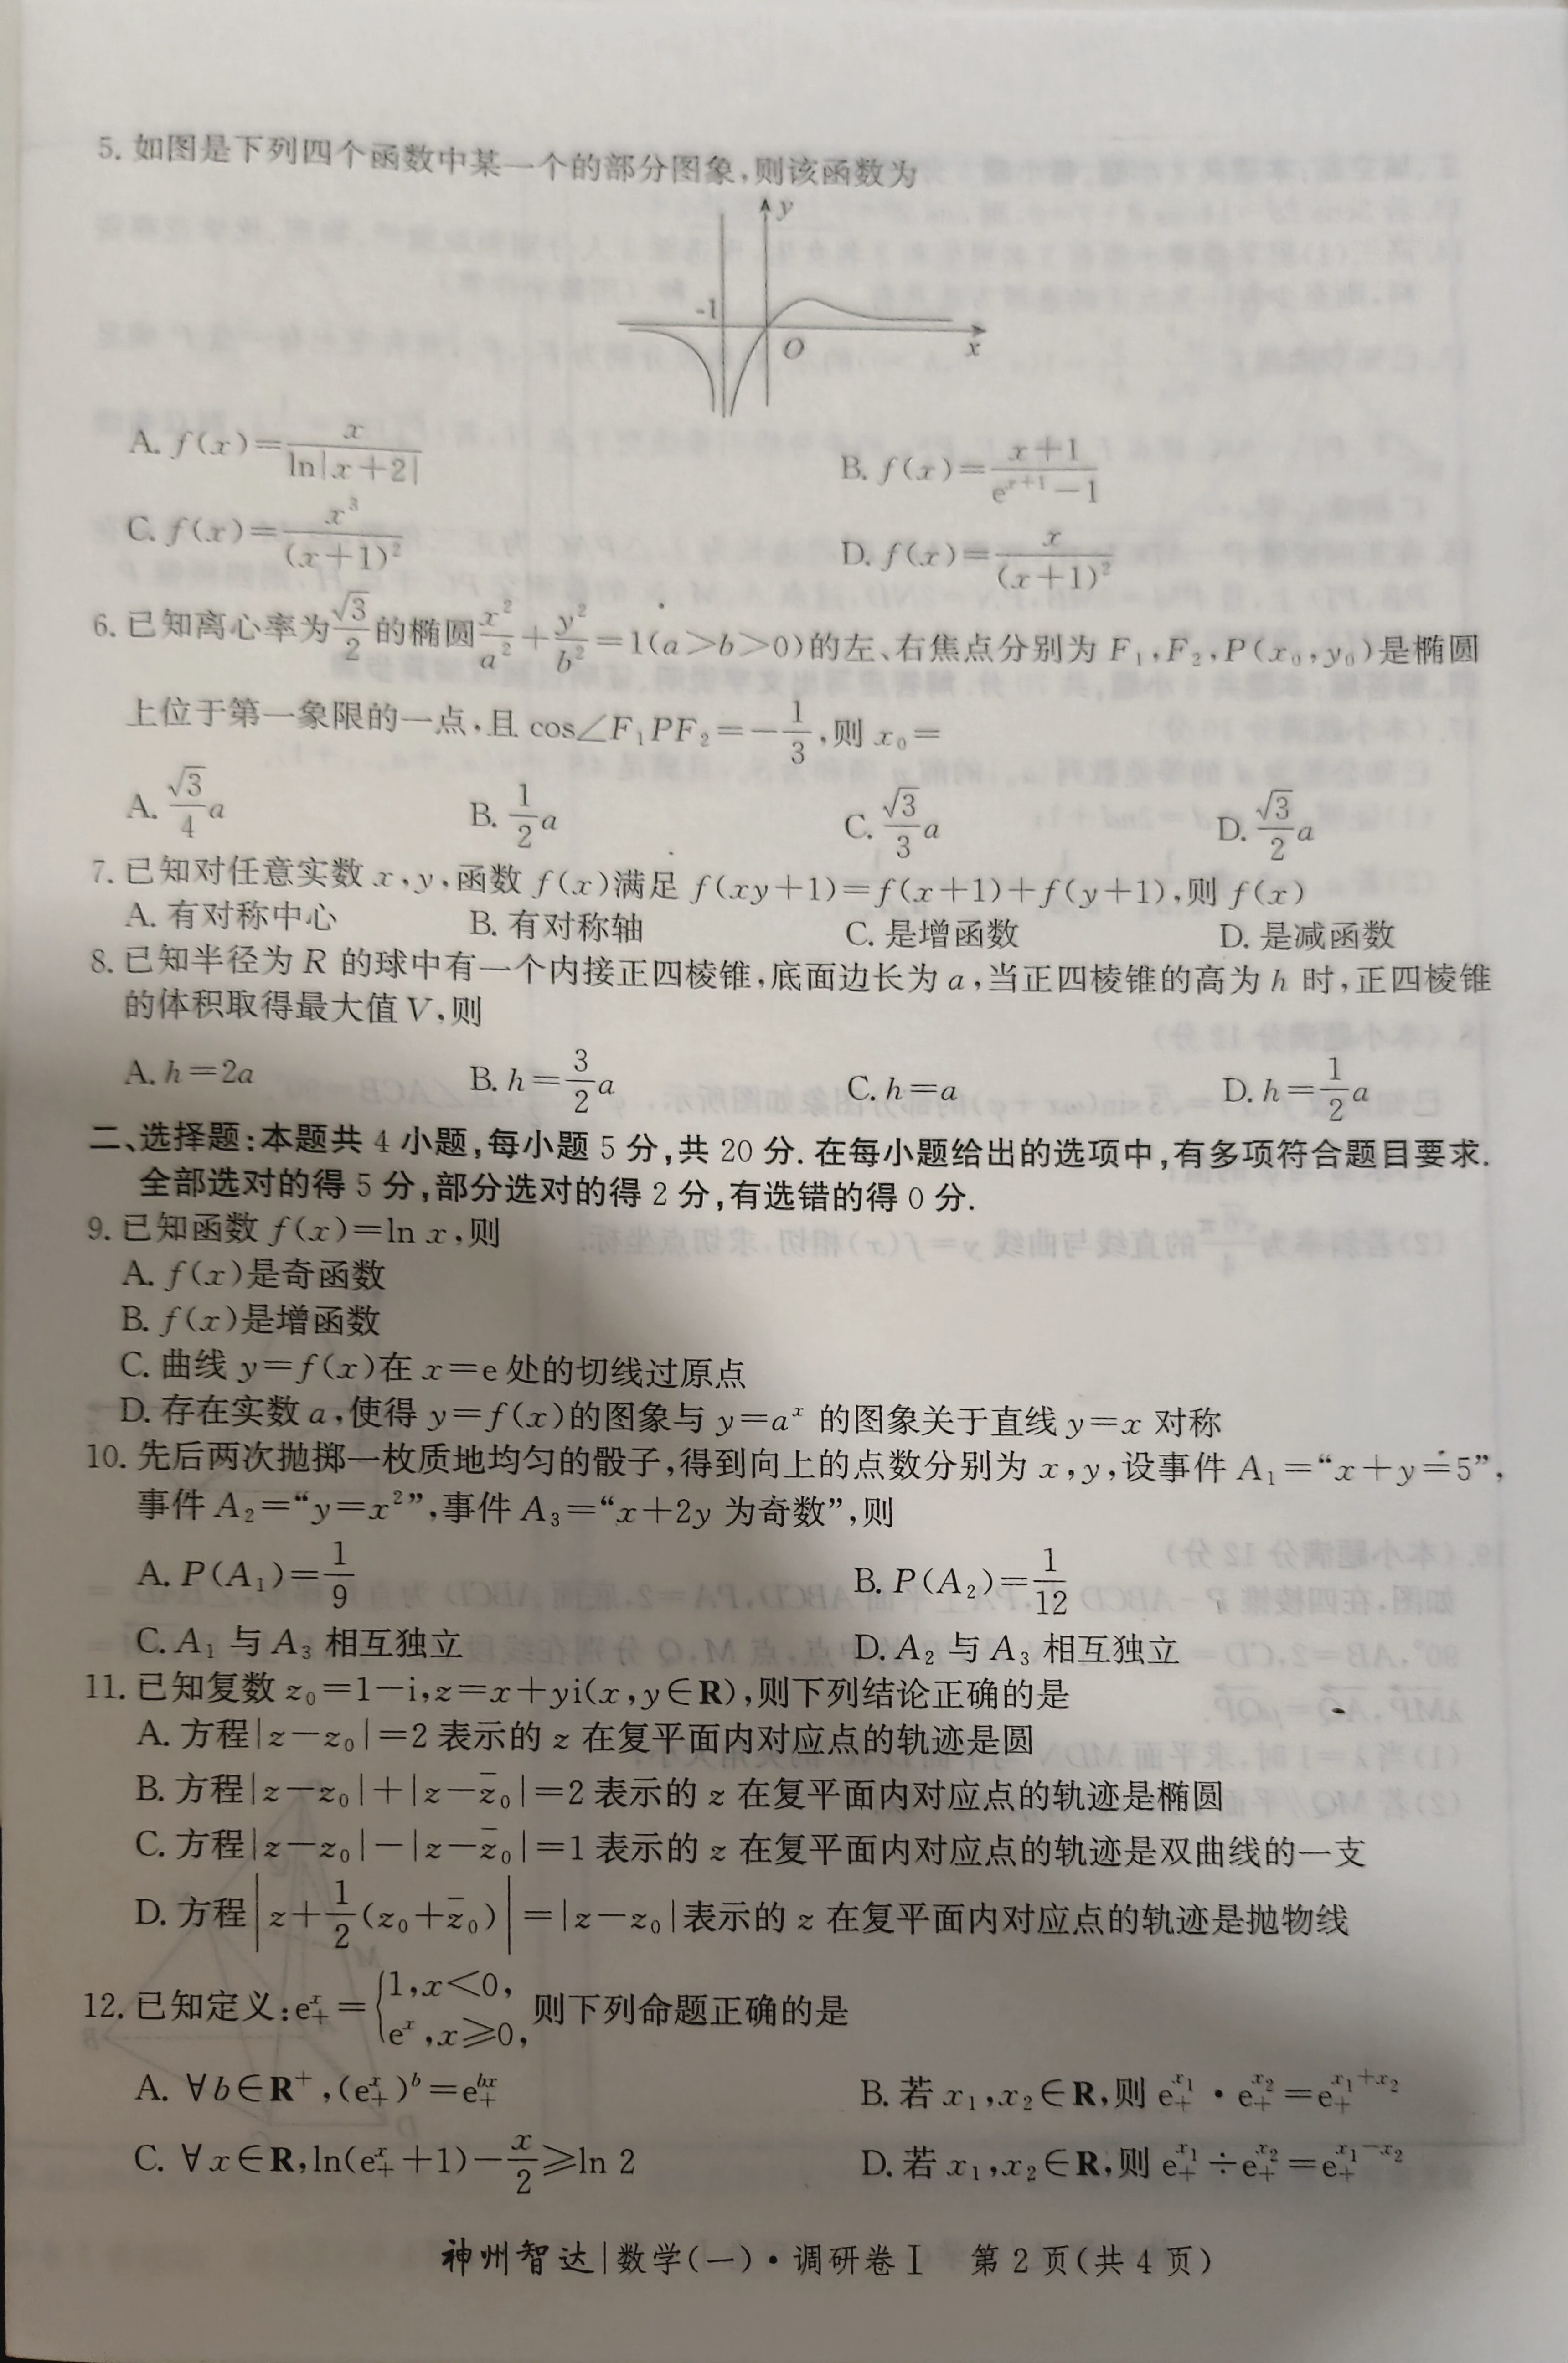 5. 如图是下列四个函数中某一个的部分图象,则该函数为
y
-1
O
x
A. f(x)=x/ln|x+2|
B. f(x)=(x+1)/(e^(x+1)-1)
C. f(x)=x³/(x+1)²
D. f(x)=x/(x+1)²
6. 已知离心率为√3/2的椭圆x²/a²+y²/b²=1(a>b>0)的左、右焦点分别为F₁,F₂,P(x₀,y₀)是椭圆
上位于第一象限的一点,且 cos∠F₁PF₂=-1/3,则 x₀=
A. √3/4 a
B. 1/2 a
C. √3/3 a
D. √3/2 a
7. 已知对任意实数 x,y,函数 f(x)满足 f(xy+1)=f(x+1)+f(y+1),则 f(x)
A. 有对称中心
B. 有对称轴
C. 是增函数
D. 是减函数
8. 已知半径为 R 的球中有一个内接正四棱锥,底面边长为 a,当正四棱锥的高为 h 时,正四棱锥
的体积取得最大值 V,则
A. h=2a
B. h=3/2 a
C. h=a
D. h=1/2 a
二、选择题:本题共 4 小题,每小题 5 分,共 20 分. 在每小题给出的选项中,有多项符合题目要求.
全部选对的得 5 分,部分选对的得 2 分,有选错的得 0 分.
9. 已知函数 f(x)=ln x,则
A. f(x)是奇函数
B. f(x)是增函数
C. 曲线 y=f(x)在 x=e 处的切线过原点
D. 存在实数 a,使得 y=f(x)的图象与 y=aˣ 的图象关于直线 y=x 对称
10. 先后两次抛掷一枚质地均匀的骰子,得到向上的点数分别为 x,y,设事件 A₁=“x+y=5”,
事件 A₂=“y=x²”,事件 A₃=“x+2y 为奇数”,则
A. P(A₁)=1/9
B. P(A₂)=1/12
C. A₁ 与 A₃ 相互独立
D. A₂ 与 A₃ 相互独立
11. 已知复数 z₀=1-i,z=x+yi(x,y∈R),则下列结论正确的是
A. 方程|z-z₀|=2 表示的 z 在复平面内对应点的轨迹是圆
B. 方程|z-z₀|+|z-z̄₀|=2 表示的 z 在复平面内对应点的轨迹是椭圆
C. 方程|z-z₀|-|z-z̄₀|=1 表示的 z 在复平面内对应点的轨迹是双曲线的一支
D. 方程|z+1/2(z₀+z̄₀)|=|z-z₀|表示的 z 在复平面内对应点的轨迹是抛物线
12. 已知定义:e₊ˣ={1,x<0, eˣ,x≥0, 则下列命题正确的是
A. ∀b∈R⁺,(e₊ˣ)ᵇ=e₊ᵇˣ
B. 若 x₁,x₂∈R,则 e₊^(x₁)·e₊^(x₂)=e₊^(x₁+x₂)
C. ∀x∈R,ln(e₊ˣ+1)-x/2≥ln 2
D. 若 x₁,x₂∈R,则 e₊^(x₁)÷e₊^(x₂)=e₊^(x₁-x₂)
神州智达|数学(一)·调研卷Ⅰ 第 2 页(共 4 页)